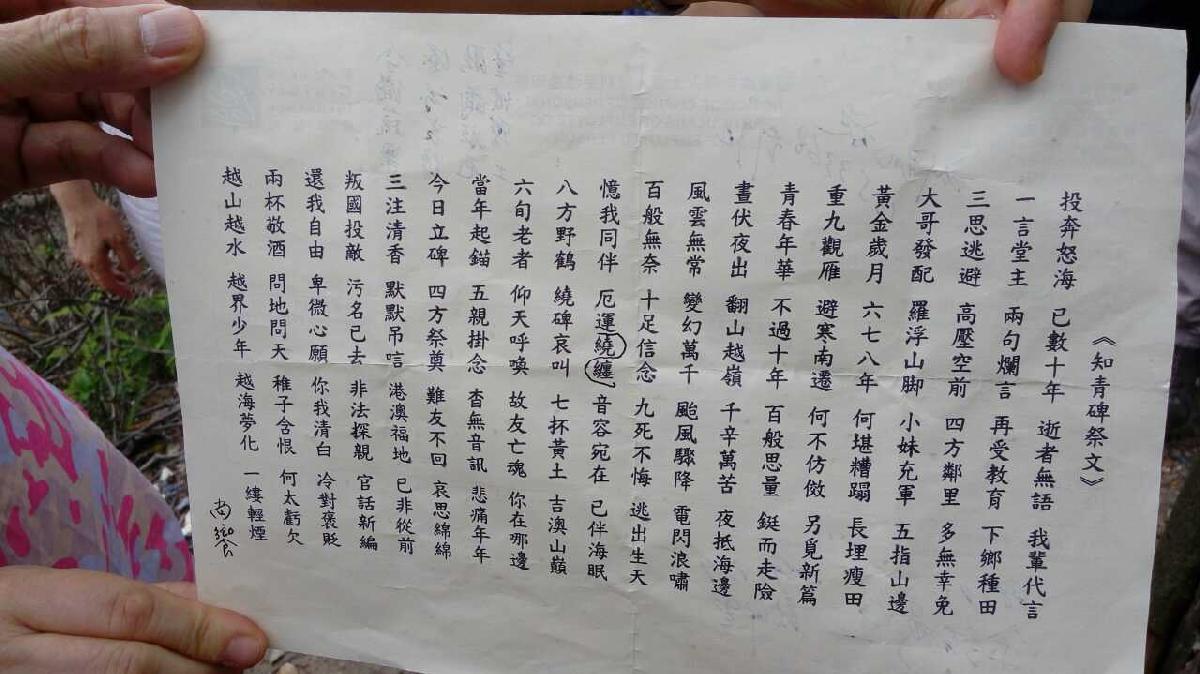 《知青碑祭文》
投奔怒海 已數十年 逝者無語 我輩代言
一言堂主 兩句爛言 再受教育 下鄉種田
三思逃避 高壓空前 四方鄰里 多無幸免
大哥發配 羅浮山脚 小妹充軍 五指山邊
黃金歲月 六七八年 何堪糟蹋 長埋瘦田
重九觀雁 避寒南遷 何不仿傚 另覓新篇
青春年華 不過十年 百般思量 鋌而走險
晝伏夜出 翻山越嶺 千辛萬苦 夜抵海邊
風雲無常 變幻萬千 颱風驟降 電閃浪嘯
百般無奈 十足信念 九死不悔 逃出生天
憶我同伴 厄運繞纏 音容宛在 已伴海眠
八方野鶴 繞碑哀叫 七杯黃土 吉澳山巔
六旬老者 仰天呼喚 故友亡魂 你在哪邊
當年起錨 五親掛念 杳無音訊 悲痛年年
今日立碑 四方祭奠 難友不回 哀思綿綿
三注清香 默默吊言 港澳福地 已非從前
叛國投敵 污名已去 非法探親 官話新編
還我自由 卑微心願 你我清白 冷對褒貶
兩杯敬酒 問地問天 稚子含恨 何太虧欠
越山越水 越界少年 越海夢化 一縷輕煙
尚饗